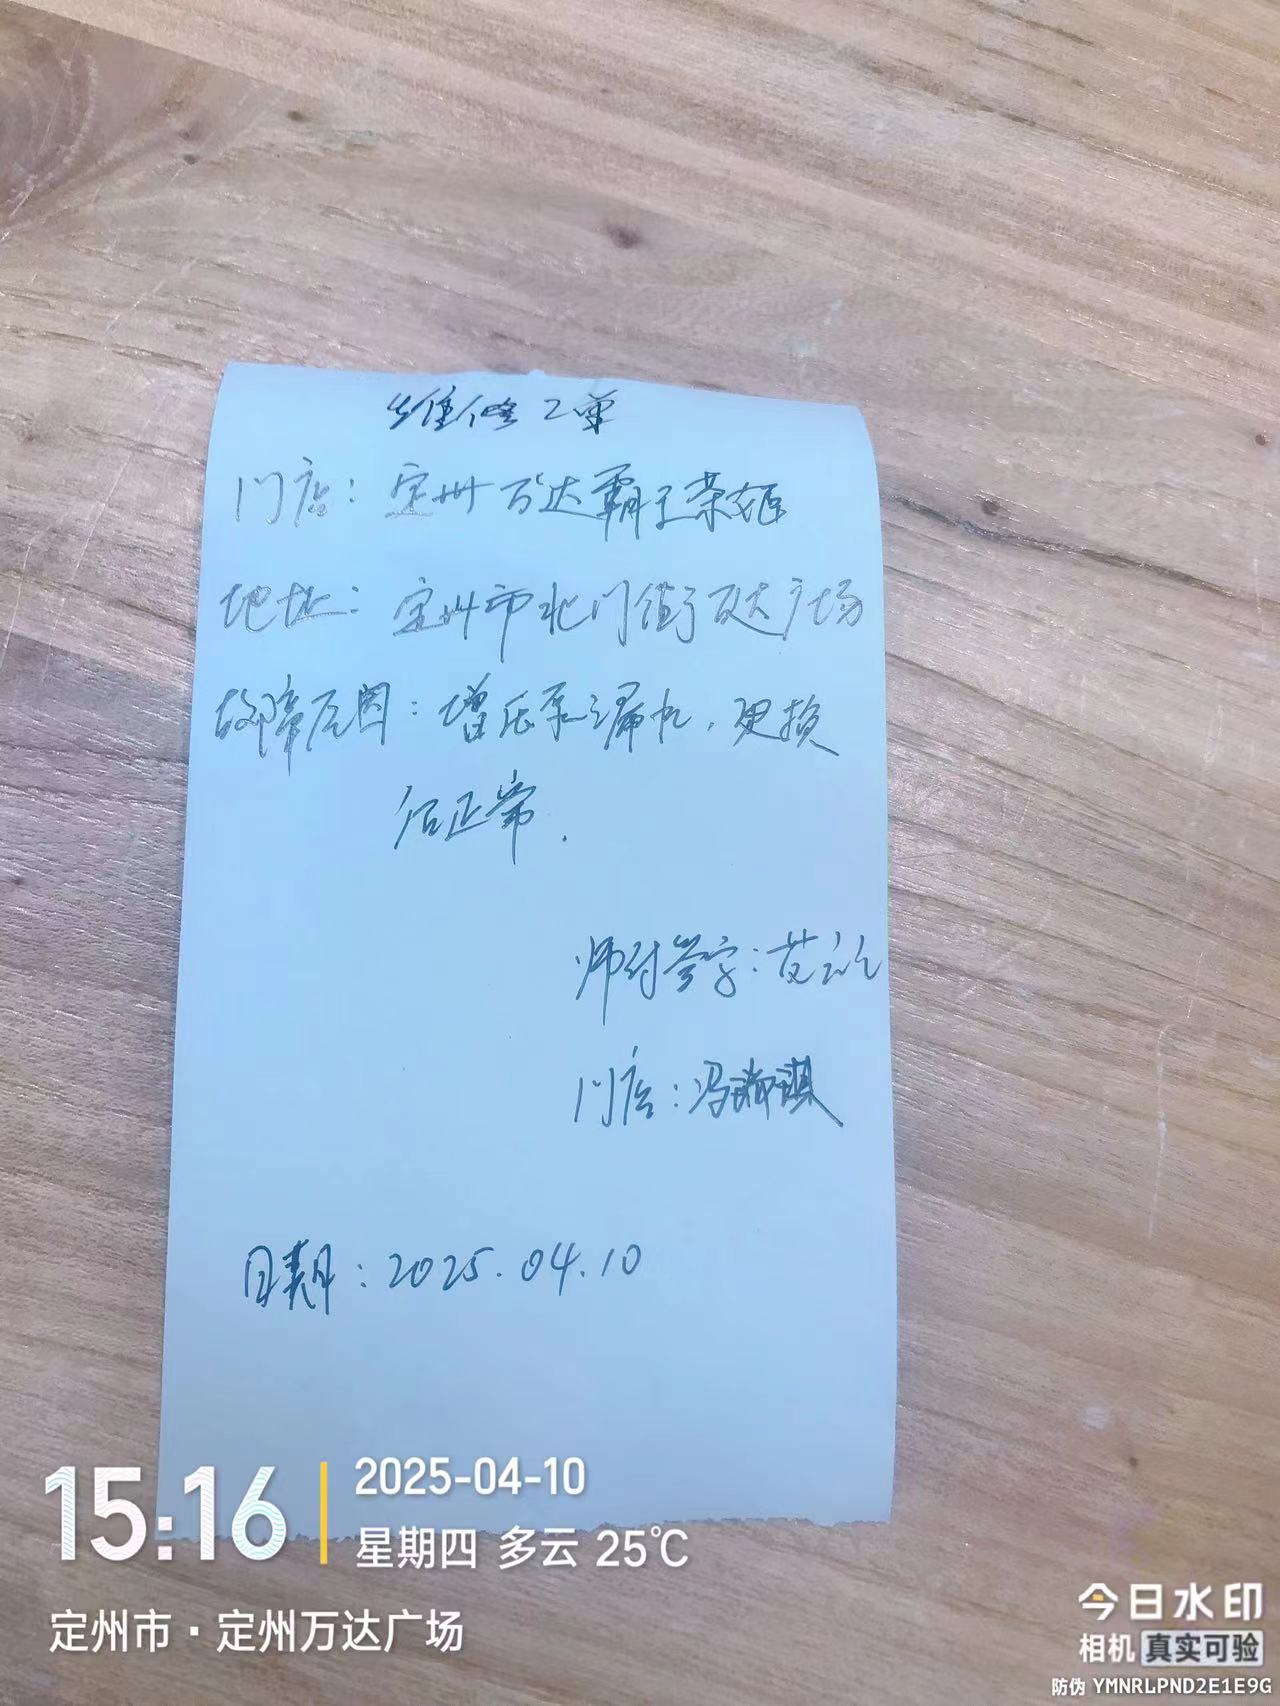 维修工单
门店：定州万达霸王茶姬
地址：定州市北门街万达广场
故障原因：增压泵漏水，更换
后正常.
师付签字：范
门店：冯瑞琪
日期：2025.04.10
15:16
2025-04-10
星期四 多云 25℃
定州市·定州万达广场
今日水印
相机 真实可验
防伪 YMNRLPND2E1E9G